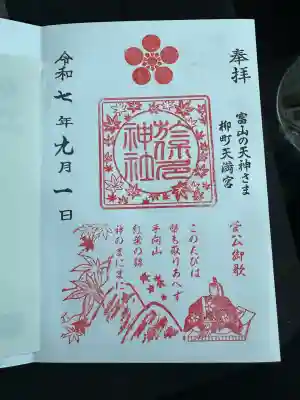 奉拝
富山の天神さま
柳町天満宮
神社
令和七年九月一日
菅公御歌
このたびは
幣も取りあへず
手向山
紅葉の錦
神のまにまに